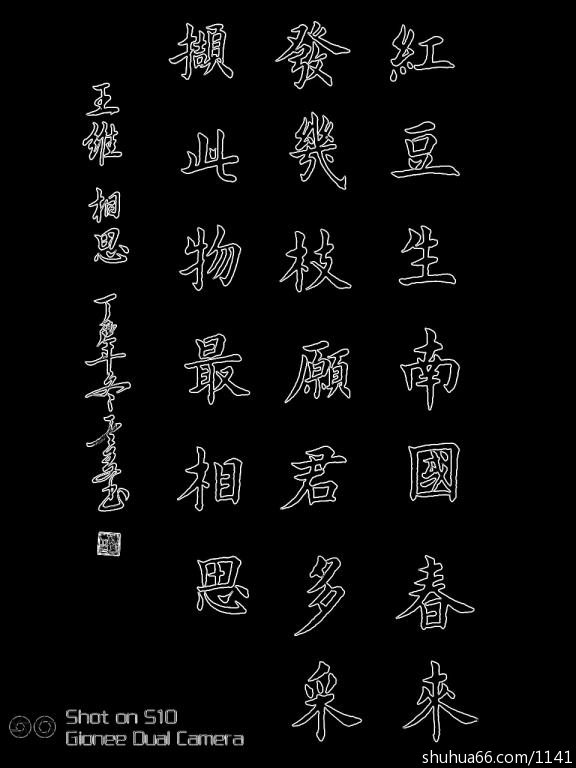 紅豆生南國春來
發幾枝願君多采
擷此物最相思
王維 相思 丁酉年冬
Shot on S10
Gionee Dual Camera
shuhua66.com/1141